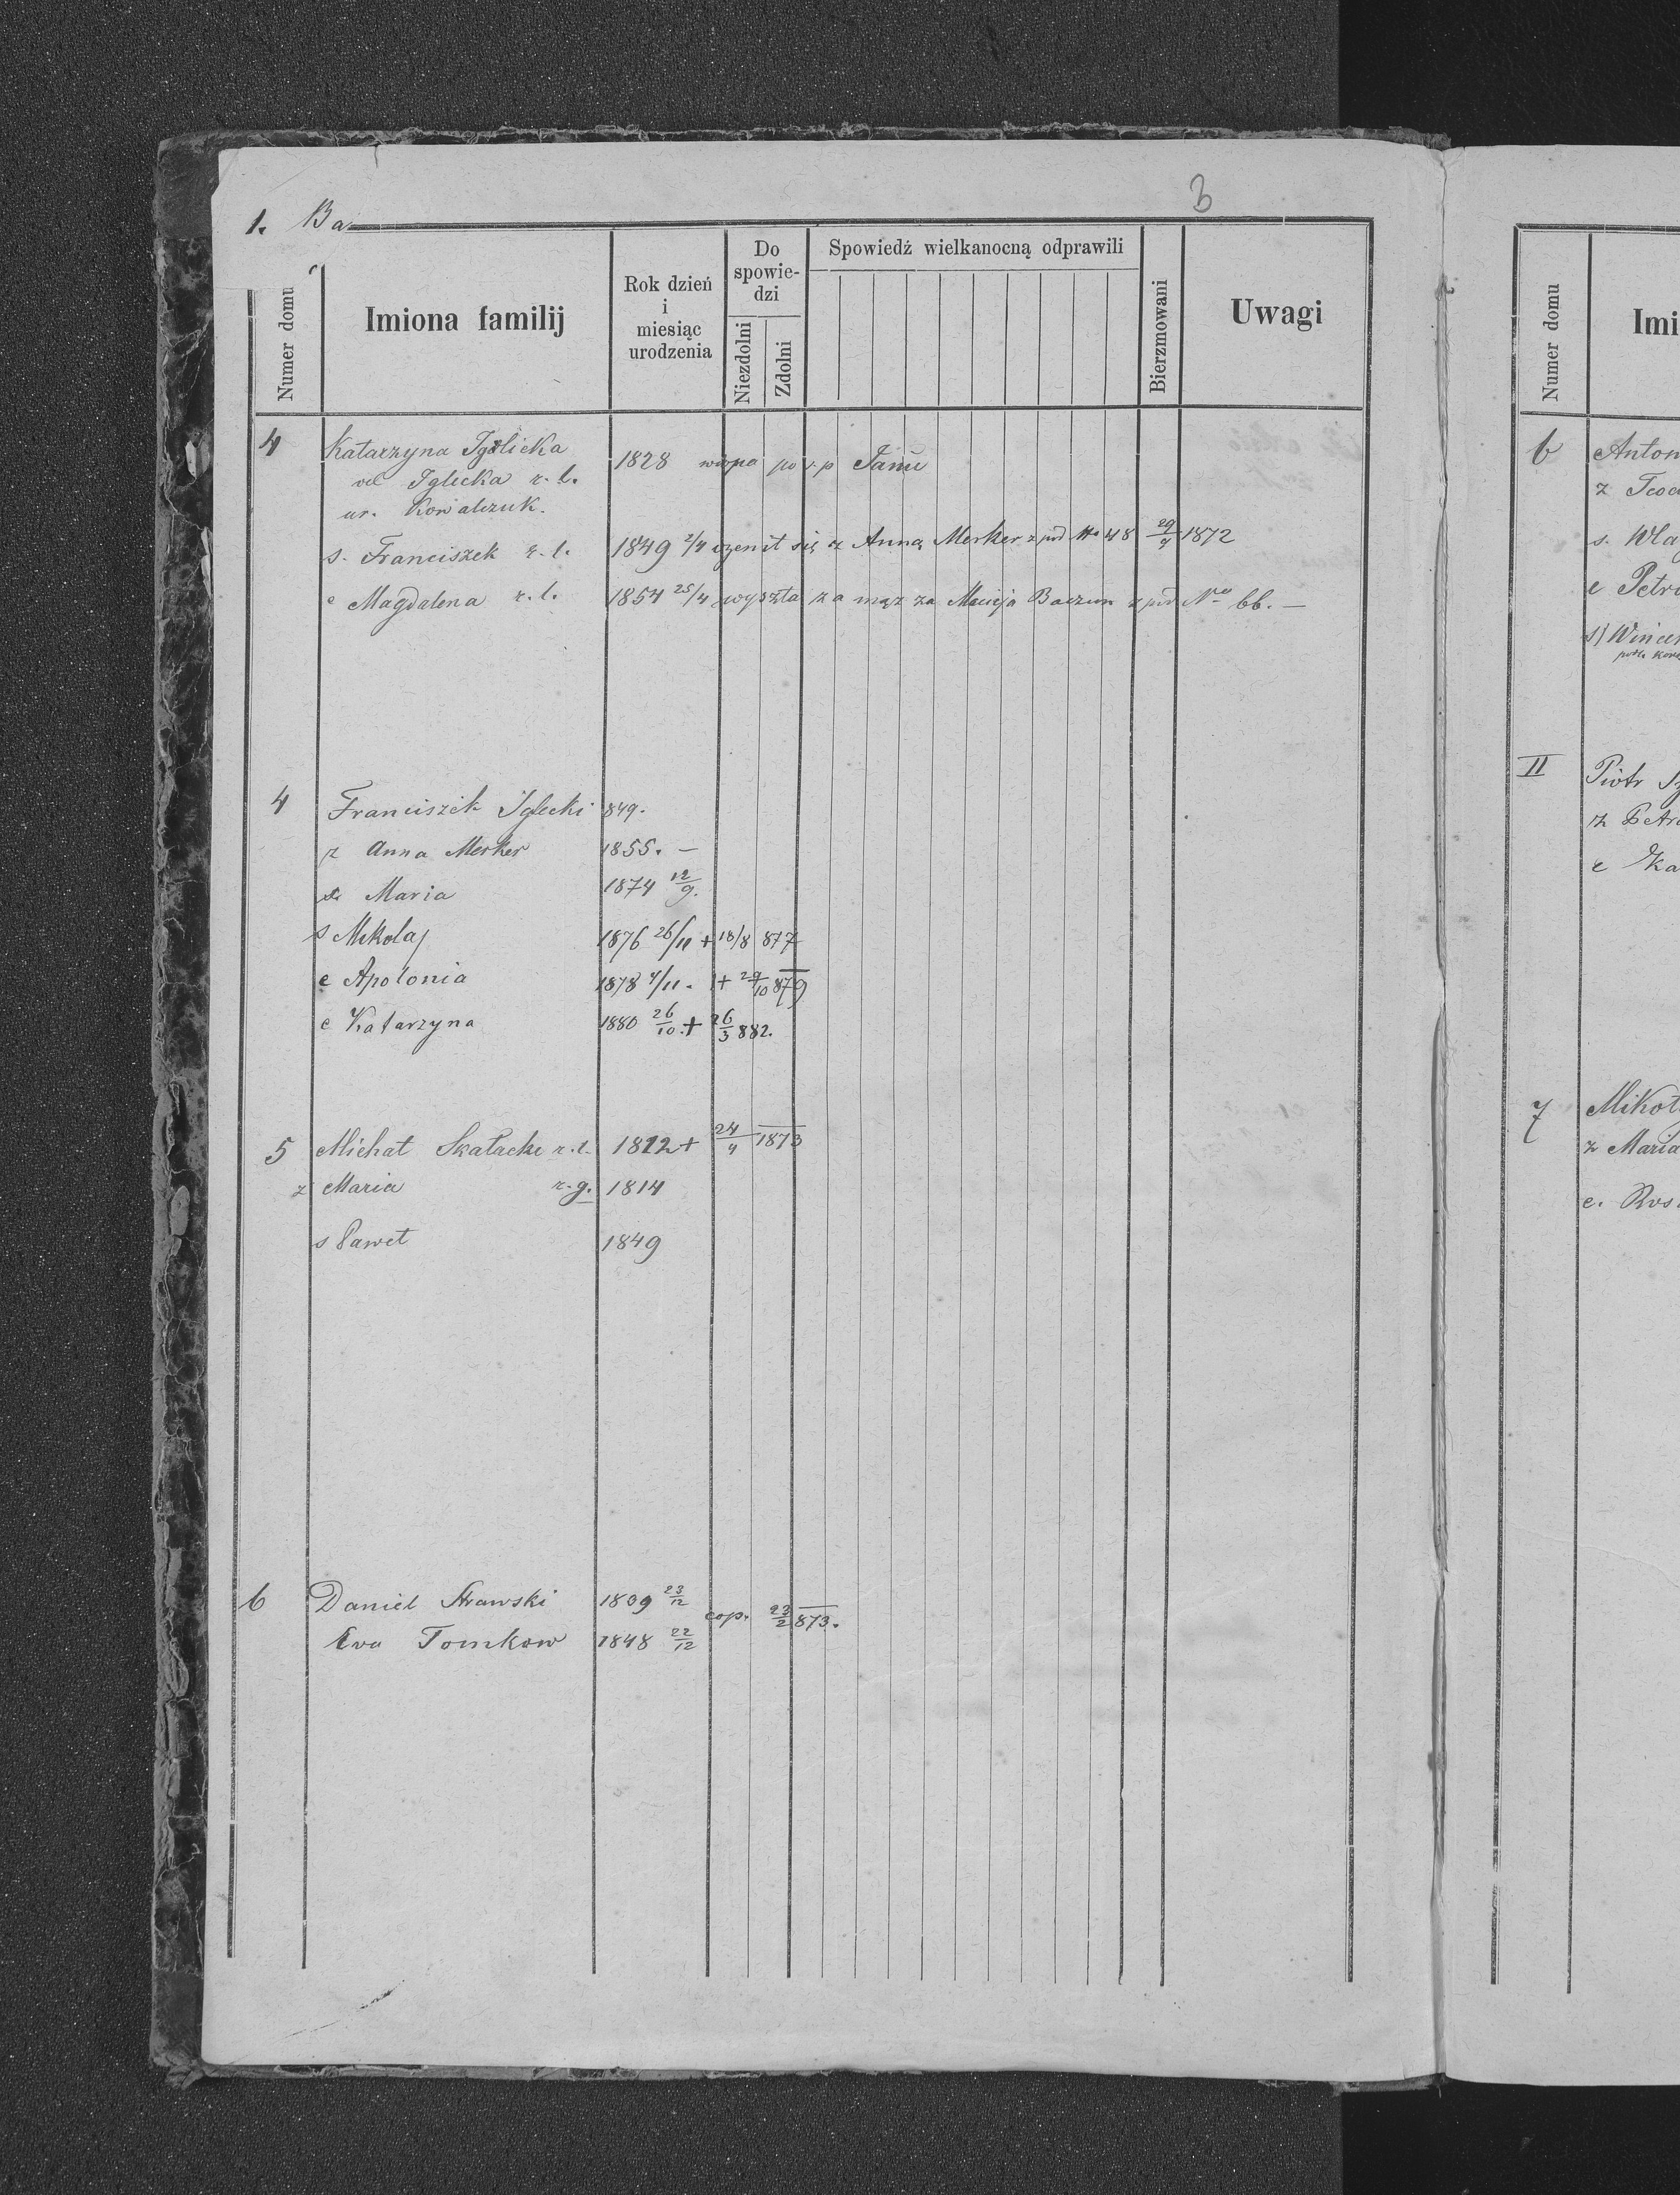 3
1. Ba
Numer domu
Imiona familij
Rok dzień
i
miesiąc
urodzenia
Do
spowie-
dzi
Niezdolni
Zdolni
Spowiedź wielkanocną odprawili
Bierzmowani
Uwagi
4 Katarzyna Iglicka 1828 wdowa po ś.p Janie
vel Iglecka r. l.
ur. Kowalczuk.
s. Franciszek r. l. 1849 2/4 ożenił się z Anną Merker z pod No 48 29/7 1872
c Magdalena r. l. 1854 25/4 wyszła za mąż za Macieja Baczun z pod Nro 66. —
4 Franciszek Iglecki 849.
ż Anna Merker 1855. —
c Maria 1874 12/9.
s Mikołaj 1876 26/11 + 18/8 877
c Apolonia 1878 4/11. + 29/10 879
c Katarzyna 1880 26/10. + 26/3 882.
5 Michał Skałacki r. l. 1812 + 24/4 1873
ż Maria r. g. 1814
s Paweł 1849
6 Daniel 1839 23/12
cop. 23/2 873.
Ewa Tomkow 1848 22/12
Numer domu
Imi
6 Anton
ż Teod
s. Wła
c Petr
s) Wincen
II Piotr
ż Petr
c Ka
7 Mikoł
ż Maria
c. Ros